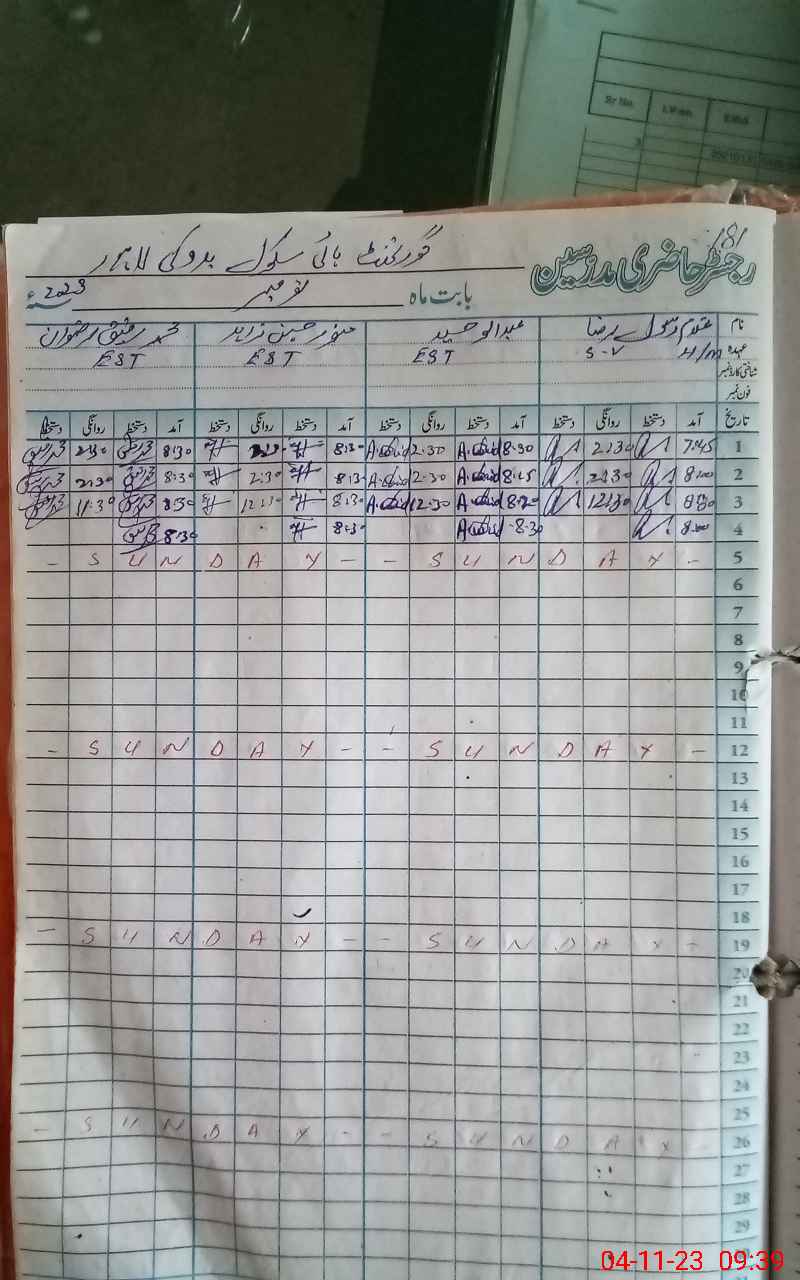 Sr No.
3
181
رجسٹر حاضری مدرسین
گورنمنٹ ہائی سکول بدوکی لاہور
بابت ماہ نومبر 2023ء
نام غلام رسول رضا عبدالوحید منور حسین زاہد محمد رفیق رضوان
عہدہ H/M S-V EST EST EST
شناختی کارڈ نمبر
فون نمبر
تاریخ آمد دستخط روانگی دستخط آمد دستخط روانگی دستخط آمد دستخط روانگی دستخط آمد دستخط روانگی دستخط
1 7:45 2:30 8:30 A.Wahid 2:30 A.Wahid 8:30 8:30 2:30
2 8:00 2:30 8:15 A.Wahid 2:30 A.Wahid 8:30 2:30 8:30 2:30
3 8:00 12:30 8:20 A.Wahid 12:30 A.Wahid 8:30 12:30 8:30 11:30
4 8:00 8:30 A.Wahid 8:30 8:30
- S U N D A Y - - S U N D A Y - 5
6
7
8
9
10
11
- S U N D A Y - - S U N D A Y - 12
13
14
15
16
17
18
- S U N D A Y - - S U N D A Y - 19
20
21
22
23
24
25
- S U N D A Y - - S U N D A Y - 26
27
28
29
04-11-23 09:39